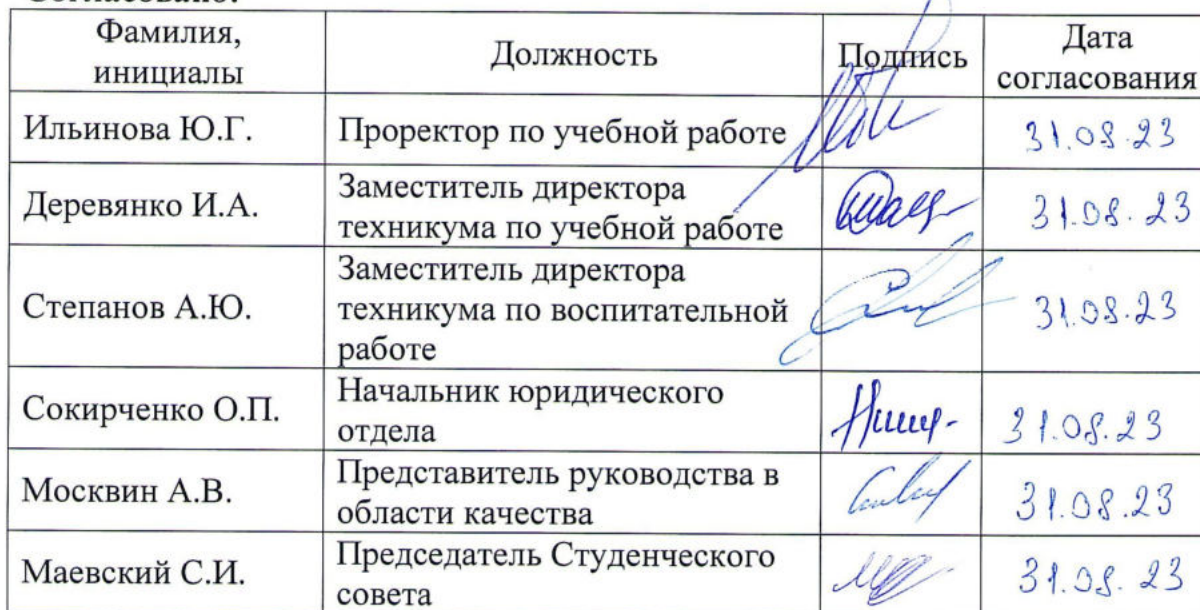 Согласовано:
Фамилия,
инициалы
Должность
Подпись
Дата
согласования
Ильинова Ю.Г.
Проректор по учебной работе
31.08.23
Деревянко И.А.
Заместитель директора
техникума по учебной работе
31.08.23
Степанов А.Ю.
Заместитель директора
техникума по воспитательной
работе
31.08.23
Сокирченко О.П.
Начальник юридического
отдела
31.08.23
Москвин А.В.
Представитель руководства в
области качества
31.08.23
Маевский С.И.
Председатель Студенческого
совета
31.08.23